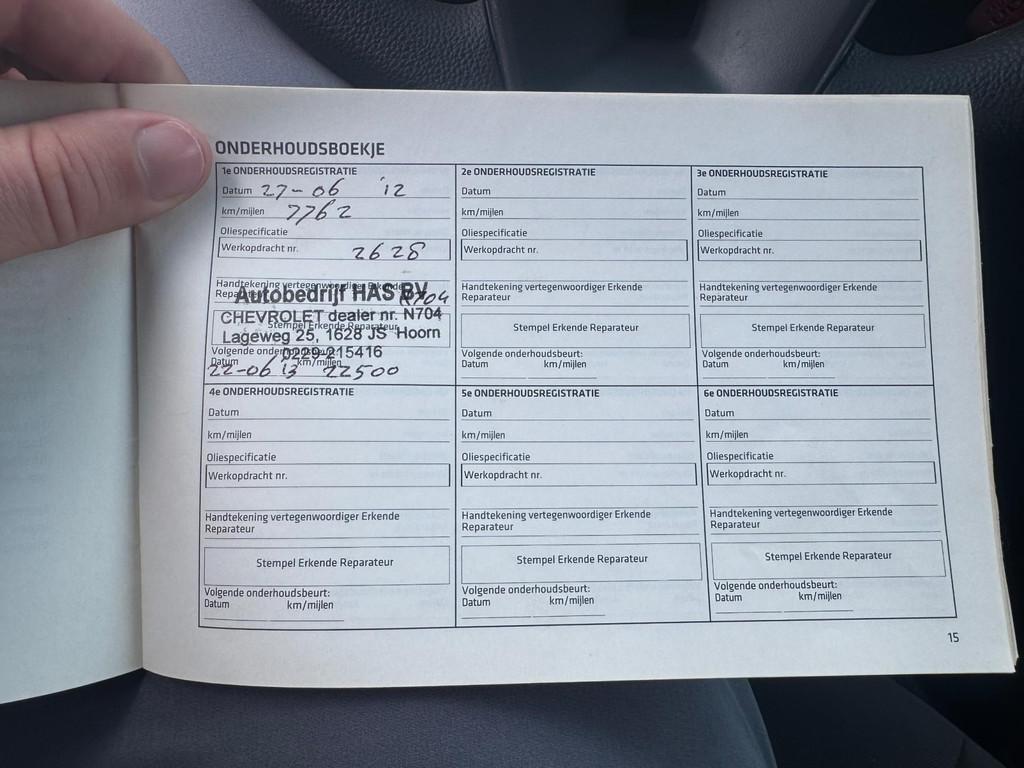 ONDERHOUDSBOEKJE
1e ONDERHOUDSREGISTRATIE
Datum 27-06 '12
km/mijlen 7762
Oliespecificatie
Werkopdracht nr. 2628
Handtekening vertegenwoordiger Erkende
Reparateur
Autobedrijf HAS BV
CHEVROLET dealer nr. N704
Stempel Erkende Reparateur
Lageweg 25, 1628 JS Hoorn
0229-215416
Volgende onderhoudsbeurt:
Datum km/mijlen
22-06 13 22500
2e ONDERHOUDSREGISTRATIE
Datum
km/mijlen
Oliespecificatie
Werkopdracht nr.
Handtekening vertegenwoordiger Erkende
Reparateur
Stempel Erkende Reparateur
Volgende onderhoudsbeurt:
Datum km/mijlen
3e ONDERHOUDSREGISTRATIE
Datum
km/mijlen
Oliespecificatie
Werkopdracht nr.
Handtekening vertegenwoordiger Erkende
Reparateur
Stempel Erkende Reparateur
Volgende onderhoudsbeurt:
Datum km/mijlen
4e ONDERHOUDSREGISTRATIE
Datum
km/mijlen
Oliespecificatie
Werkopdracht nr.
Handtekening vertegenwoordiger Erkende
Reparateur
Stempel Erkende Reparateur
Volgende onderhoudsbeurt:
Datum km/mijlen
5e ONDERHOUDSREGISTRATIE
Datum
km/mijlen
Oliespecificatie
Werkopdracht nr.
Handtekening vertegenwoordiger Erkende
Reparateur
Stempel Erkende Reparateur
Volgende onderhoudsbeurt:
Datum km/mijlen
6e ONDERHOUDSREGISTRATIE
Datum
km/mijlen
Oliespecificatie
Werkopdracht nr.
Handtekening vertegenwoordiger Erkende
Reparateur
Stempel Erkende Reparateur
Volgende onderhoudsbeurt:
Datum km/mijlen
15